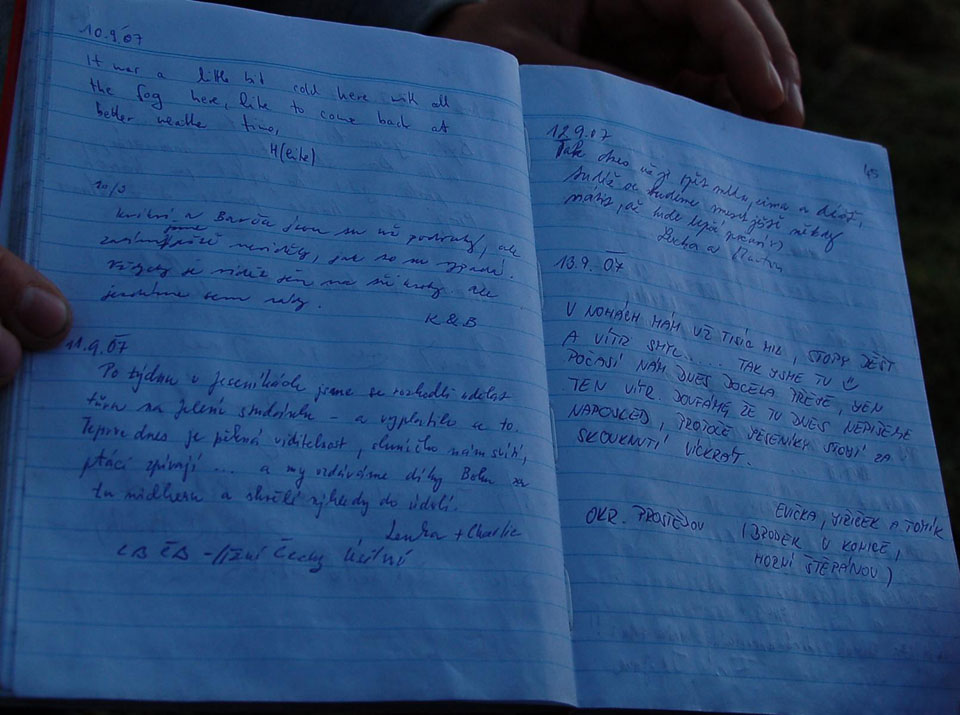 10.9.07
It was a little bit cold here with all
the fog here, like to come back at
better weather time,
H(eike)
10/9
a Barča jsou tu už podruhé, ale
jak to tu vypadá.
je vidět jen na dva kroky. Ale
sem rády.
K & B
11.9.07
Po týdnu v Jeseníkách jsme se rozhodli udělat
túru na Jelení studánku – a vyplatilo se to.
Teprve dnes je pěkná viditelnost, sluníčko nám svítí,
ptáci zpívají ... a my vzdáváme díky Bohu za
tu nádheru a skvělé výhledy do údolí.
Lenka + Charlie
ČB - Jižní Čechy
45
12.9.07
Tak dnes už je zima a déšť,
budeme muset ještě někdy
přijít, až bude lepší počasí :)
a Martin
13.9.07
V NOHÁCH MÁM UŽ TISÍC MIL, STOPY DÉŠŤ
A VÍTR SMYL.... TAK JSME TU
POČASÍ NÁM DNES DOCELA PŘEJE, JEN
TEN VÍTR. DOUFÁME, ŽE TU DNES NEPÍŠEME
NAPOSLED, PROTOŽE JESENÍKY STOJÍ ZA
SKOUKNUTÍ VÍCKRÁT.
EVIČKA, JIŘÍČEK A TOMÍK
OKR. PROSTĚJOV (BRODEK U KONICE,
HORNÍ ŠTĚPÁNOV)